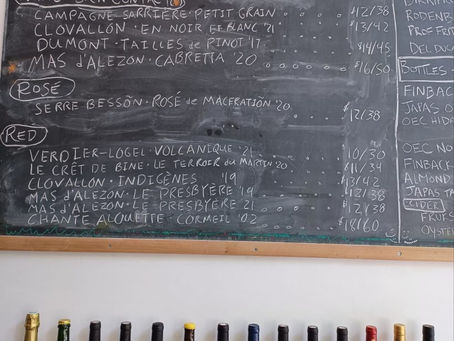 CAMPAGNE SARRIÈRE · PETIT GRAIN $12/38
CLOVALLON · EN NOIR et BLANC '21 $13/42
DUMONT · TAILLES de PINOT '17 $14/45
MAS d'ALEZON · CABRETTA '20 $16/50
ROSÉ
SERRE BESSON · ROSÉ de MACERATION '20 $12/38
RED
VERDIER-LOGEL · VOLCANIQUE '21 10/30
LE CRÊT DE BINE · LE TERROIR du MARTIN '20 $11/34
CLOVALLON · INDIGÈNES '19 $13/42
MAS d'ALEZON · LE PRESBYÈRE '19 $12/38
MAS d'ALEZON · LE PRESBYÈRE '21 $12/38
CHANTE ALOUETTE · CORMEIL '02 $18/60
RODENB
PROF FRIT
DEL DUC
BOTTLES
FINBACK
JAPAS O
OEC HID
OEC NO
FINBACK
ALMOND
JAPAS TA
CIDER
OYSTE